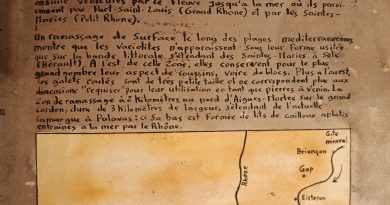 ensuite véhiculés par le fleuve jusqu'à la mer où ils parvi-
ennent par Port-Saint-Louis (Grand Rhône) et par les Saintes-
Maries (Petit Rhône).
Un ramassage de Surface le long des plages méditerranéennes
montre que les variolites n'apparaissent sous leur forme usitée
que sur la bande littorale s'étendant des Saintes-Maries à Sète
(Hérault). A l'est de cette Zone, elles conservent pour le plus
grand nombre leur aspect de coussins, voire de blocs. Plus a l'ouest,
les galets roulés sont de très petite taille et ne correspondent plus aux
dimensions "requises" pour leur utilisation en tant que pierres à Venin. La
Zone de ramassage à 2 Kilomètres au nord d'Aigues-Mortes sur le grand
cordon, dune de 3 kilomètres de largeur, s'étendant de l'actuelle
Camargue à Palavas: Sa base est formée de lits de cailloux aplatis
entraînés à la mer par le Rhône.
Gîte
minéral
Briançon
Gap
Rhône
Sisteron